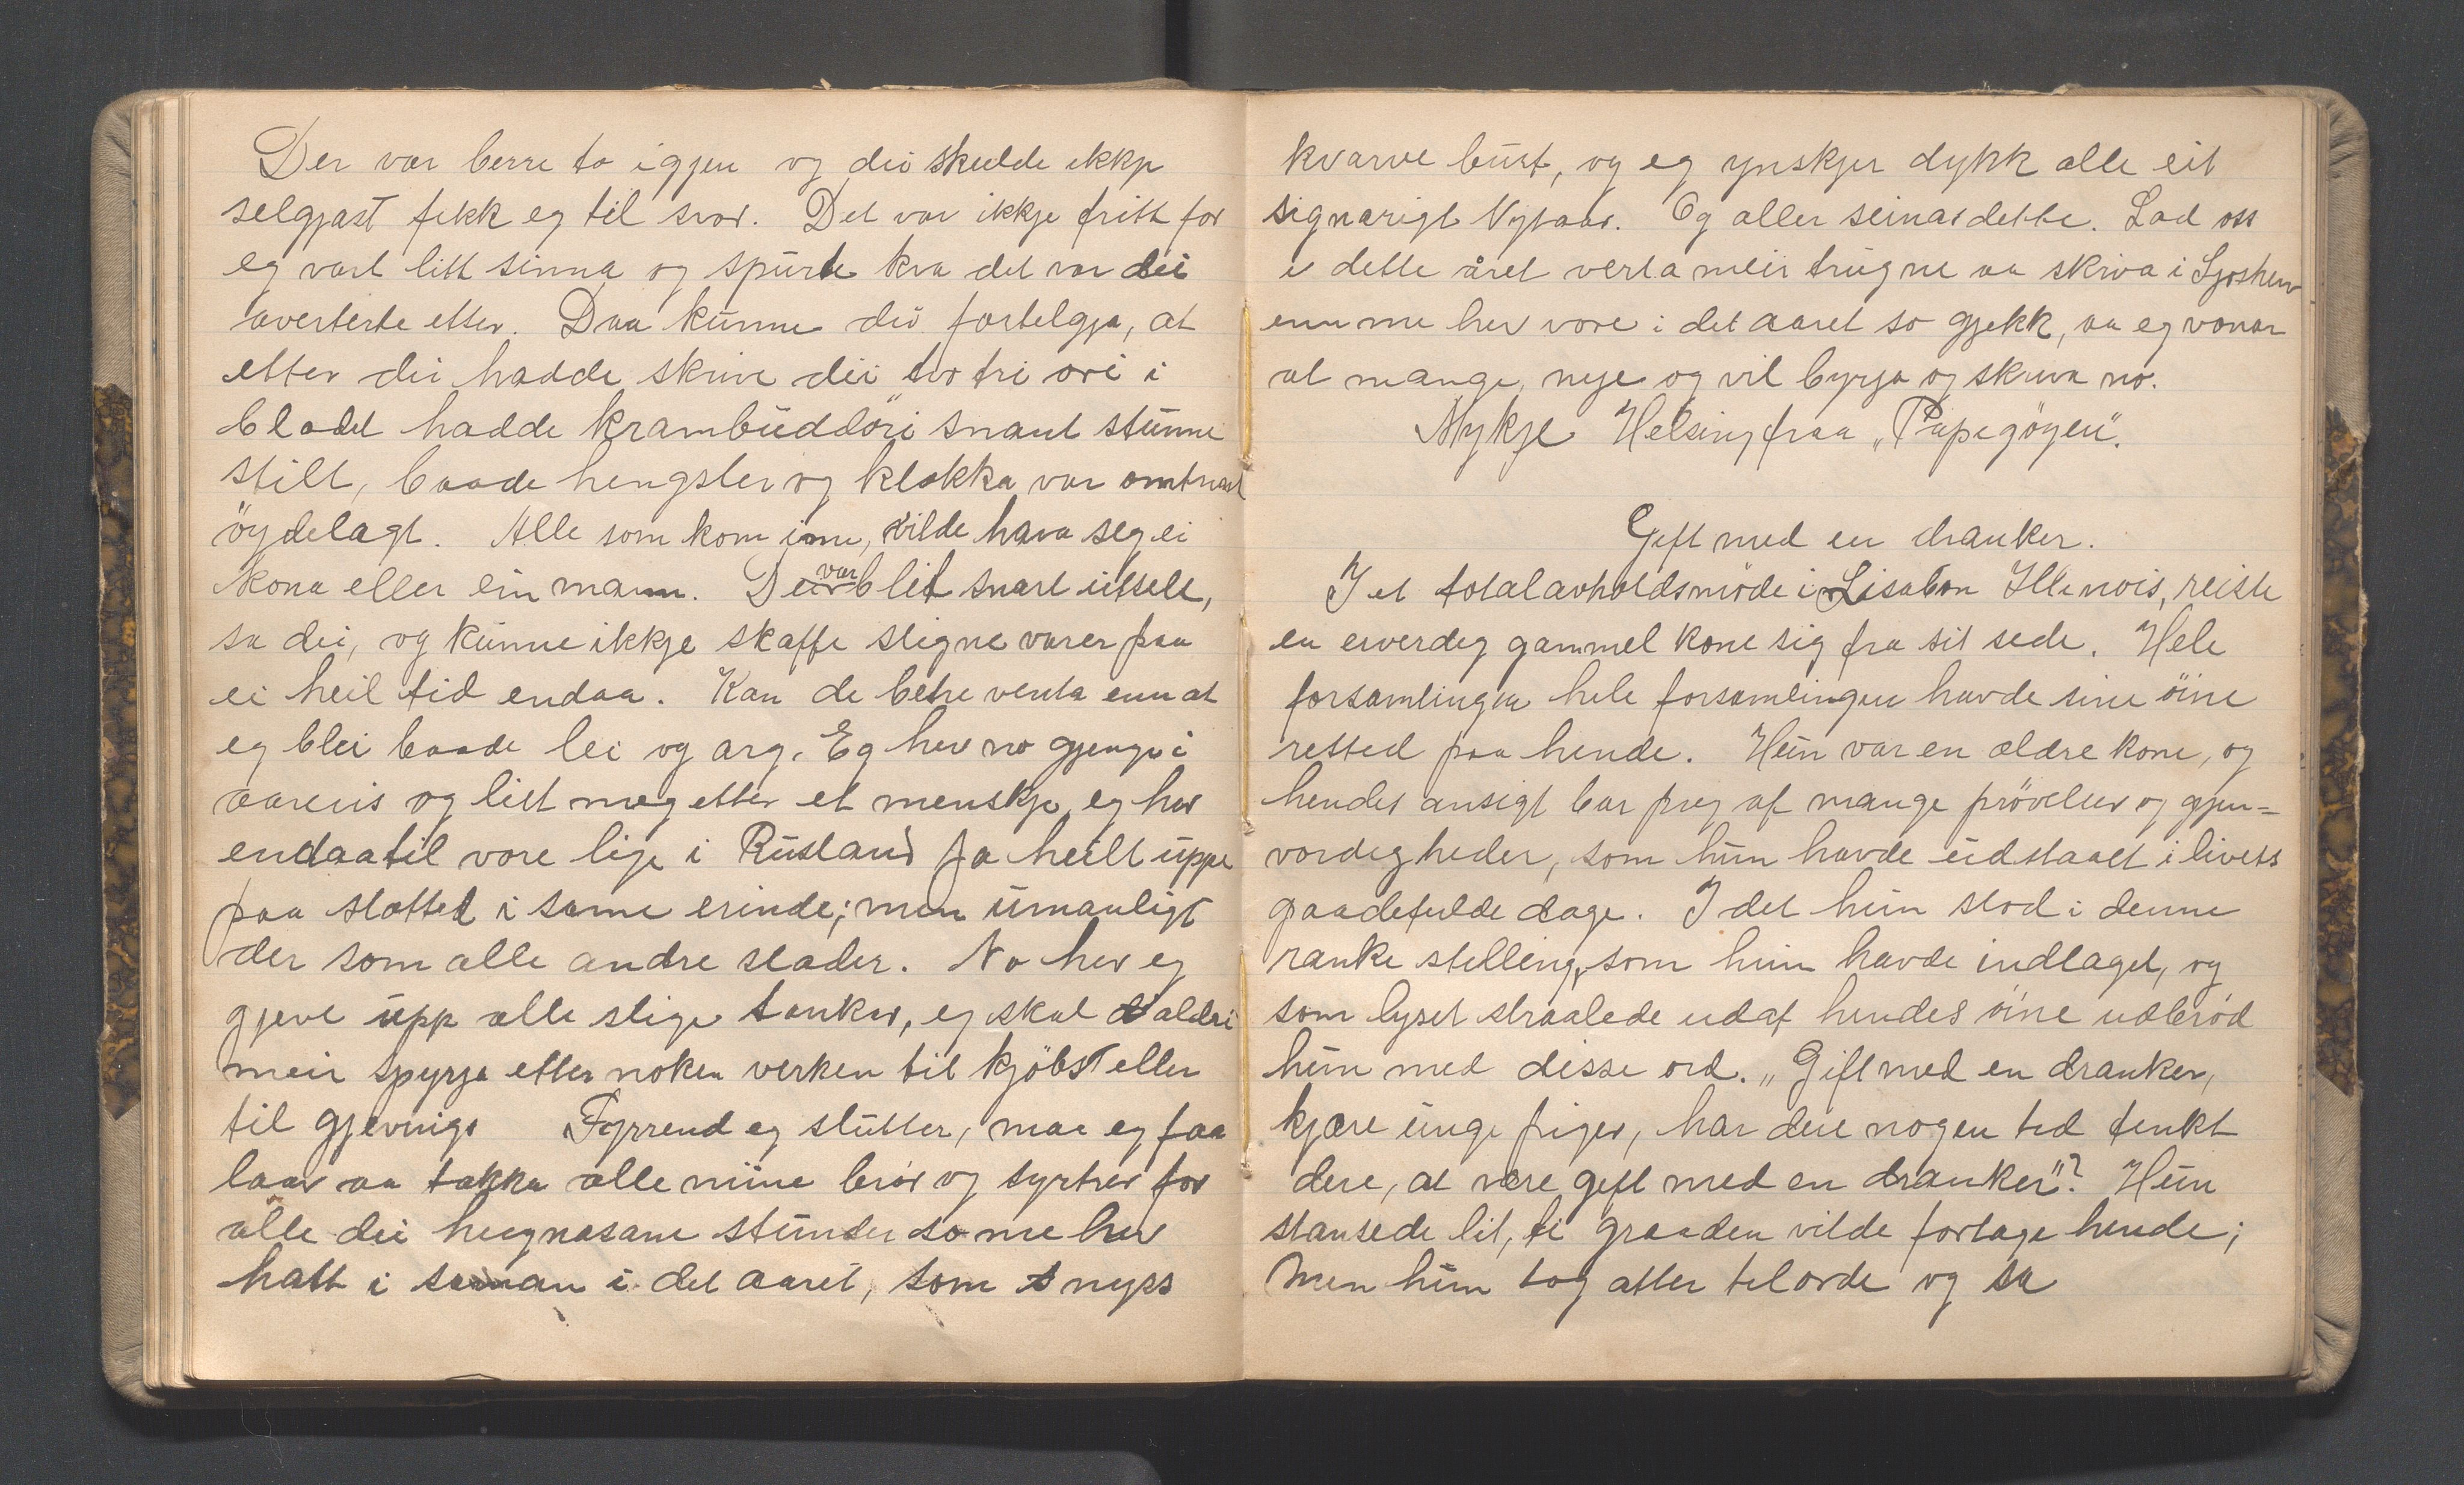 Der var berre to igjen og dei skulde ikkje
selgjast fekk eg til svar. Det var ikkje fritt for
eg vart litt sinna og spurte kva det var dei
averterte etter. Daa kunne dei fortelgja, at
etter dei hadde skrive dei tvo tri ori i
bladet hadde krambuddöri snaut stunne
still, baade hengsler og klokka var omtrent
öydelagt. Alle som kom inn, vilde hava seg ei
kona eller ein mann. Dei var blit snart utselt,
sa dei, og kunne ikkje skaffe sligne varer paa
ei heil tid endaa. Kan de betre venta enn at
eg blei baade lei og arg. Eg hev no gjenge i
aarevis og leitt meg etter et menskje, eg hev
endaatil vore lige i Rusland ja heilt uppe
paa slottet i same erinde; men umauligt
der som alle andre stader. No hev eg
gjeve upp alle slige tanker, eg skal aldri
meir spyrja etter noken verken til kjöbs eller
til gjevnigs Fyrrend eg slutter, maa eg faa
laav aa takka alle mine brör og systrer for
alle dei hugnasame stunder so me hev
hatt i saman i det aaret, som nyss
kvarve burt, og eg ynskjer dykk alle eit
signarigt Nytaar. Og aller seinas dette. Lad oss
i dette året verta meir trugne aa skriva i Ljosken
enn me hev vore i det aaret so gjekk, aa eg vonar
at mange, nye og vil byrja og skriva no.
Mykje Helsing fraa „Papegöyen".
Gift med en dranker.
I et totalavholdsmöde i Lisabon Illenois, reiste
en erverdig gammel kone sig fra sit sede. Hele
forsamlingen hele forsamlingen havde sine öine
retted paa hende. Hun var en ældre kone, og
hendes ansigt bar preg af mange prövelser og gjen=
vordigheder, som hun havde udstaaet i livets
gaadefulde dage. I det hun stod i denne
ranke stelling, som hun havde indtaget, og
som lyset straalede ud af hendes öine udbröd
hun med disse ord. „Gift med en dranker,
kjære unge piger, har dere nogen tid tenkt
dere, at være gift med en dranker"? Hun
stansede lit, ti graaden vilde fortage hende;
men hun tog atter til orde og sa